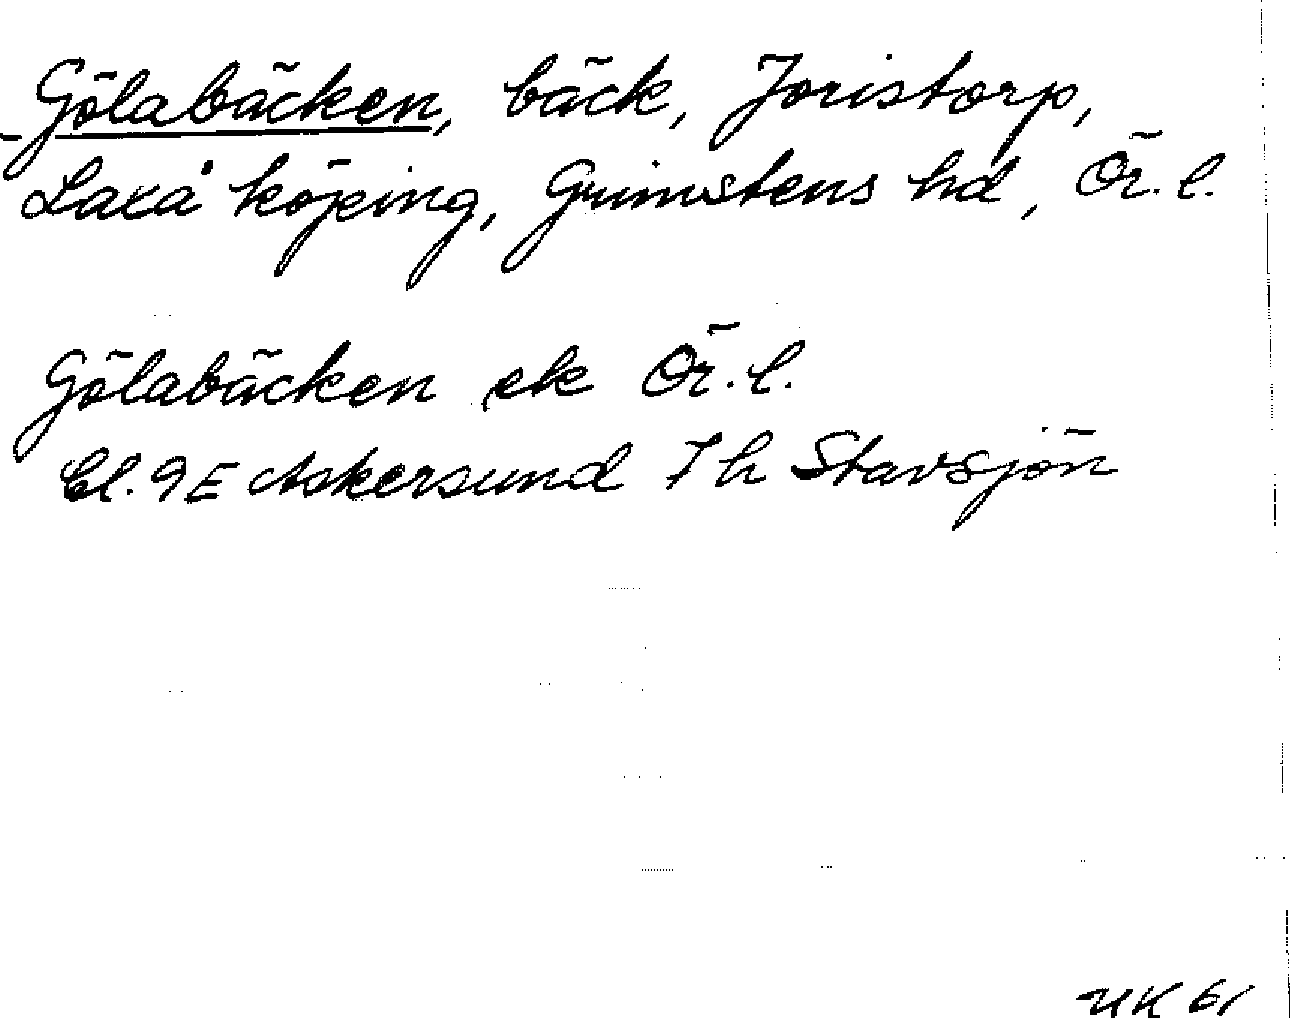 Gölabäcken, bäck, Joristorp,
Laxå köping, Grimstens hd, Ör. l.
Gölabäcken ek Ör. l.
bl. 9E Askersund Th Stavsjön
UK 61